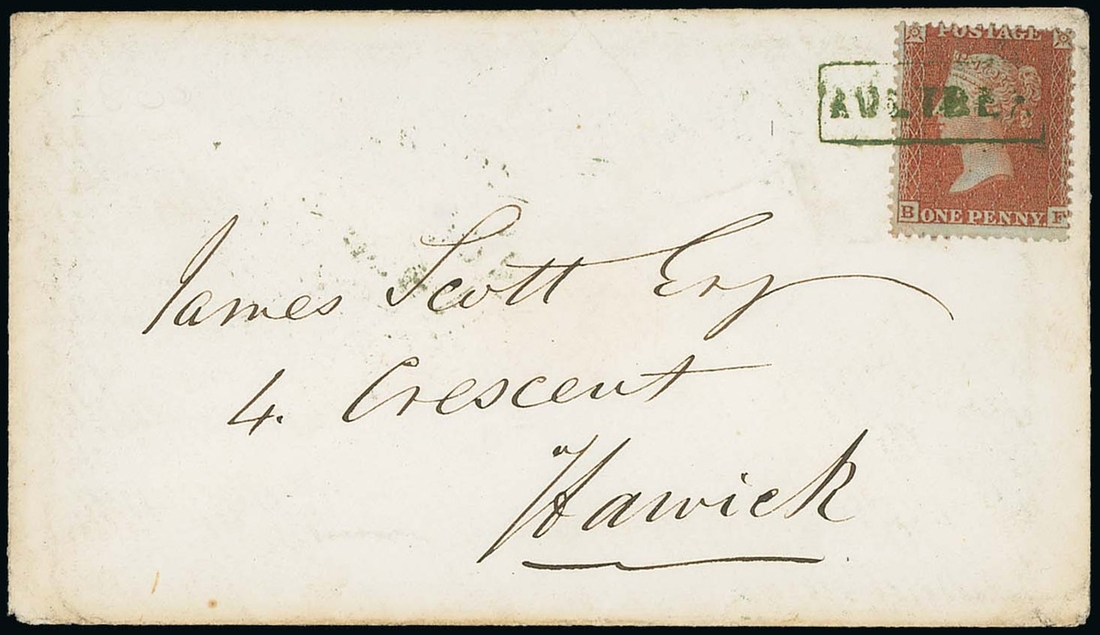 POSTAGE
B ONE PENNY F
James Scott Esq
4. Crescent
Hawick